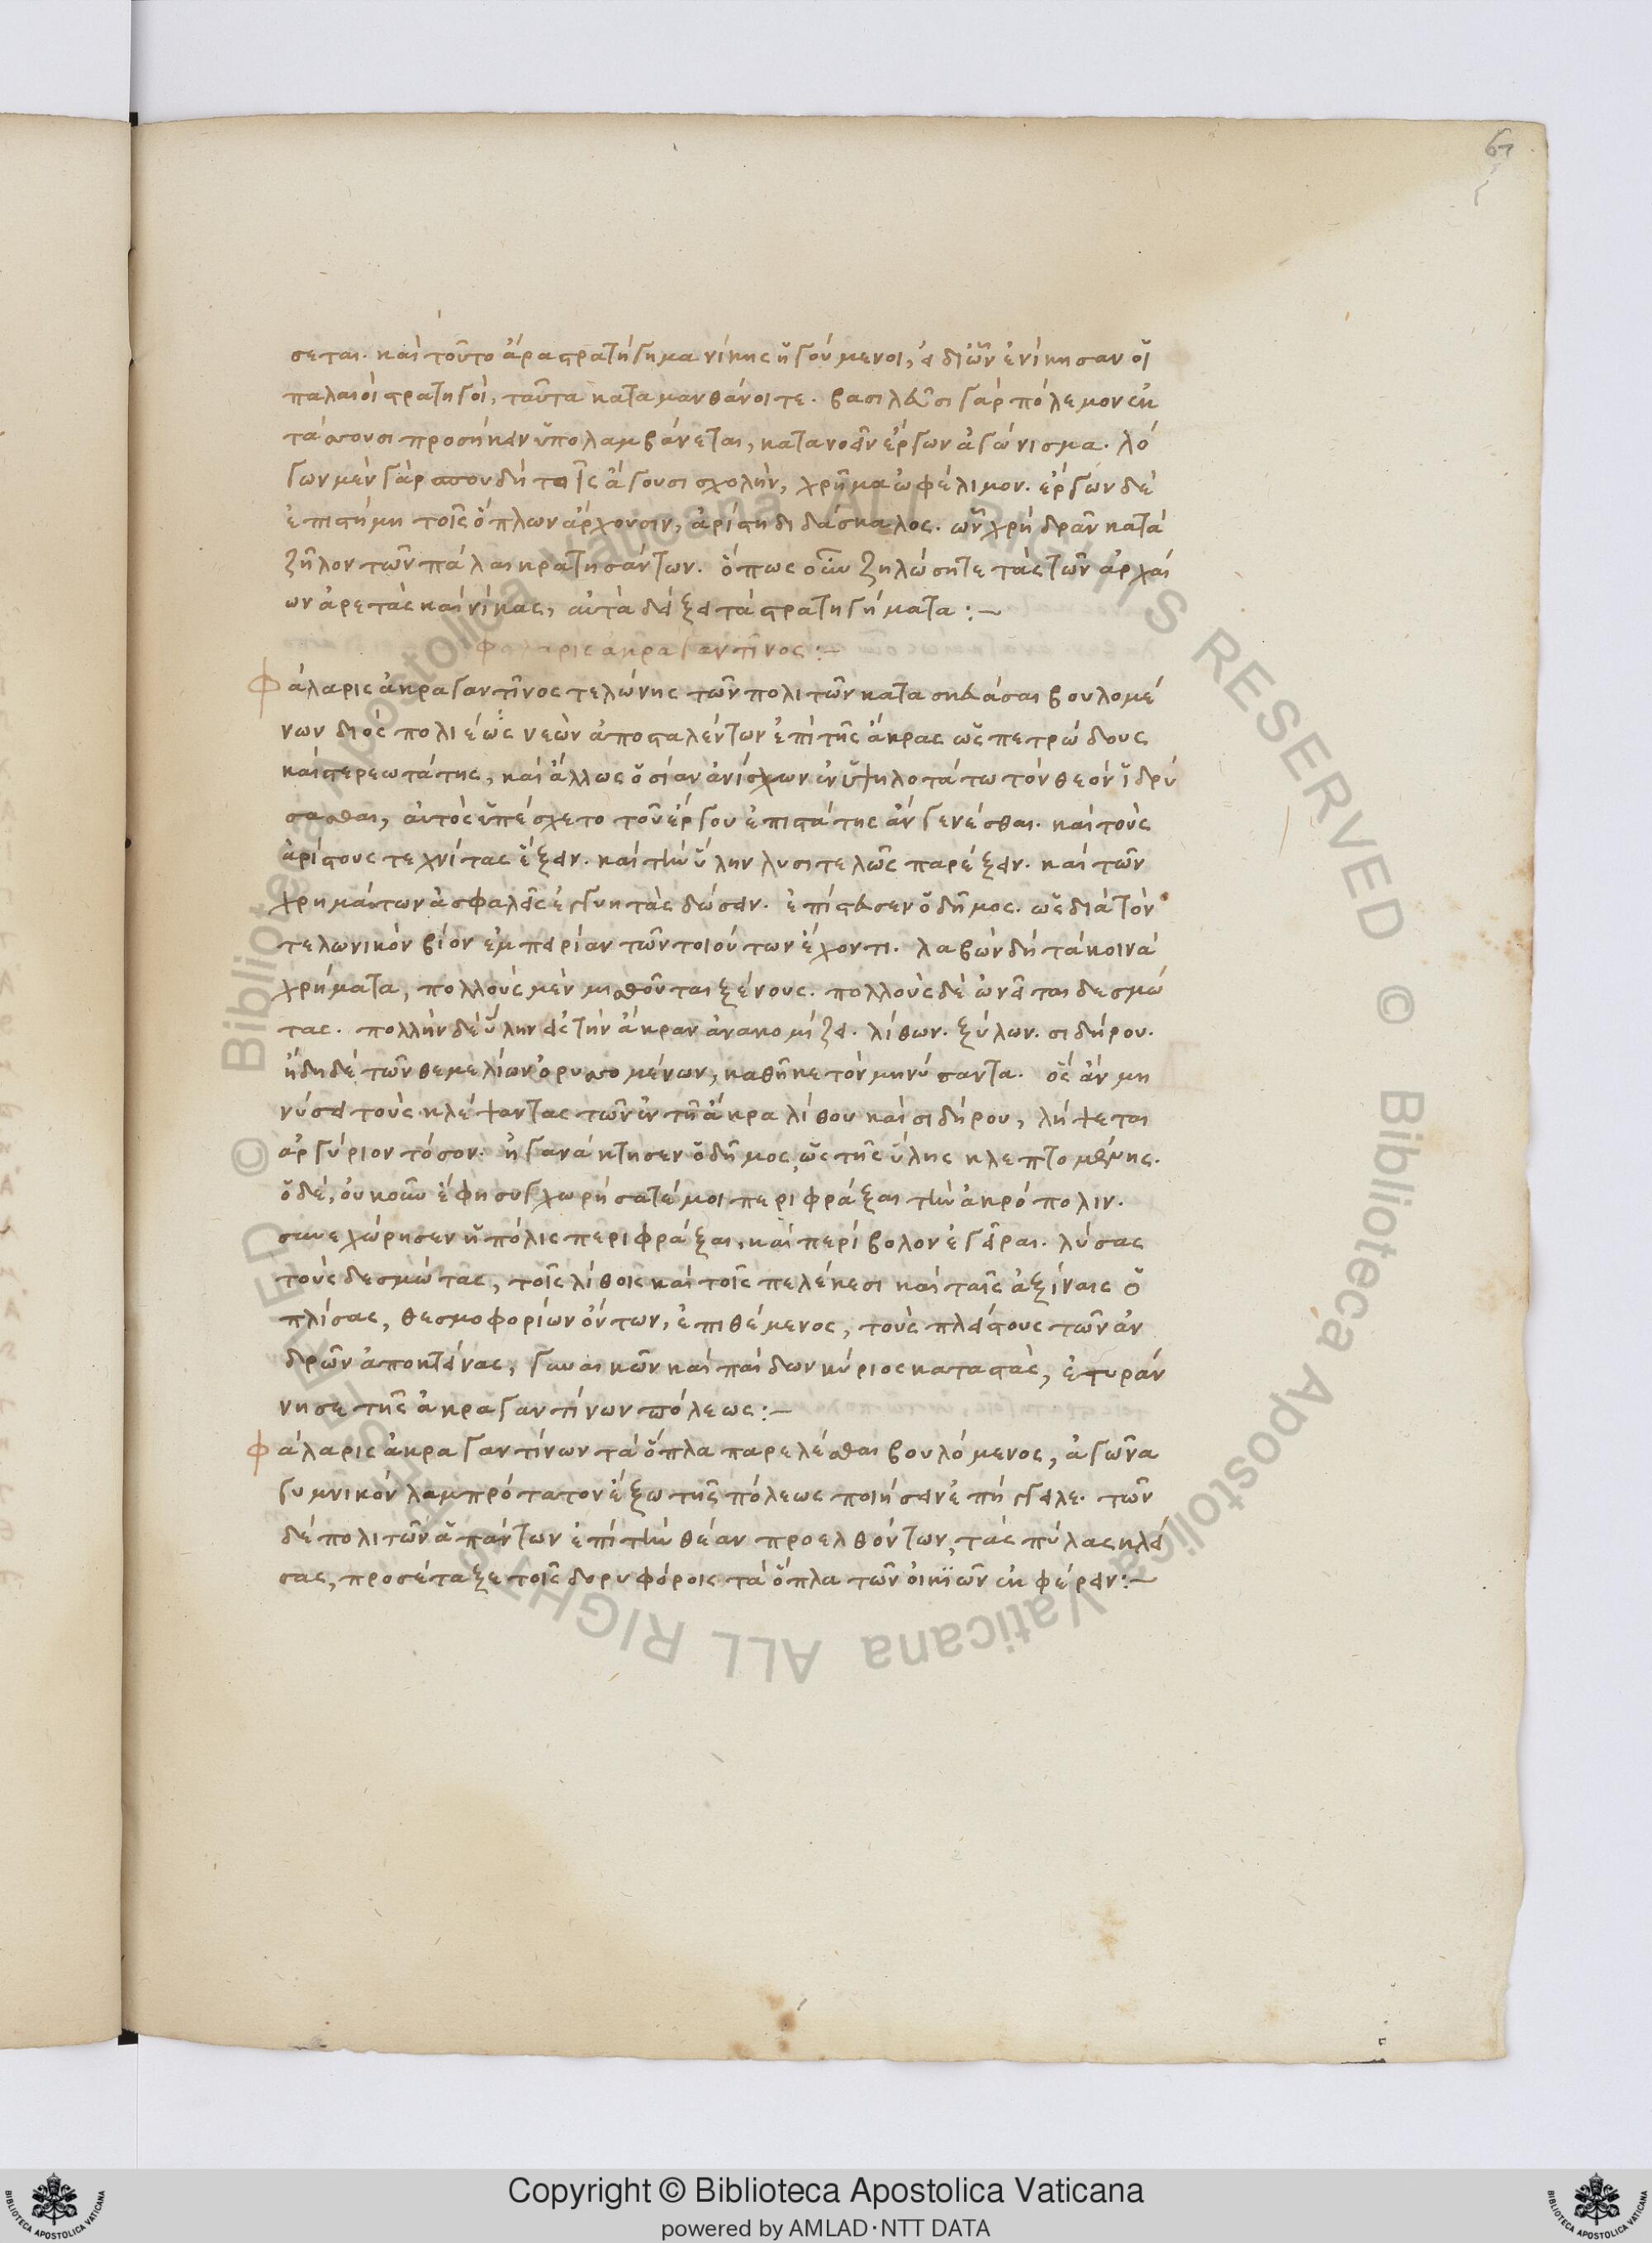 67
σεται. καὶ τοῦτο ἄρα στρατήγημα νίκης ἡγούμενοι, ἃ δι᾽ ὧν ἐνίκησαν οἱ
παλαιοὶ στρατηγοί, ταῦτα καταμανθάνοιτε. βασιλεῦσι γὰρ πόλεμον ἐκ
τάττουσι προσήκειν ὑπολαμβάνεται, κατανοεῖν ἔργων ἀγώνισμα. λό
γων μὲν γὰρ σπουδὴ ταῖς ἄγουσι σχολὴν, χρῆμα ὠφέλιμον. ἔργων δὲ
ἐπιστήμη τοῖς ὅπλων ἄρχουσιν, ἀρίστη διδάσκαλος. ὧν χρὴ δρᾶν κατὰ
ζῆλον τῶν πάλαι κρατησάντων. ὅπως οὖν ζηλώσητε τὰς τῶν ἀρχαί
ων ἀρετὰς καὶ νίκας, αὐτὰ δείξει τὰ στρατηγήματα :~
Φάλαρις ἀκραγαντῖνος :~
Φάλαρις ἀκραγαντῖνος τελώνης τῶν πολιτῶν κατασκευάσαι βουλομέ
νων διὸς πολιέως νεὼν ἀπὸ ταλέντων ἐπὶ τῆς ἄκρας ὡς πετρώδους
καὶ στερεωτάτης, καὶ ἄλλως ὅσιαν ἀνίσχων ἐν ὑψηλοτάτω τὸν θεὸν ἱδρύ
σασθαι, αὐτὸς ὑπέσχετο τοῦ ἔργου ἐπιστάτης ἂν γενέσθαι. καὶ τοὺς
ἀρίστους τεχνίτας ἕξειν. καὶ τὴν ὕλην λυσιτελῶς παρέξειν. καὶ τῶν
χρημάτων ἀσφαλεῖς ἐγγυητὰς δώσειν. ἐπίστευσεν ὁ δῆμος. ὡς διὰ τὸν
τελωνικὸν βίον ἐμπειρίαν τῶν τοιούτων ἔχοντι. λαβὼν δὴ τὰ κοινὰ
χρήματα, πολλοὺς μὲν μισθοῦνται ξένους. πολλοὺς δὲ ὠνεῖται δεσμώ
τας. πολλὴν δὲ ὕλην εἰς τὴν ἄκραν ἀνακομίζει. λίθων. ξύλων. σιδήρου.
ἤδη δὲ τῶν θεμελίων ὀρυττομένων, καθῆκε τὸν μηνύσαντα. ὃς ἂν μη
νύσει τοὺς κλέψαντας τῶν ἐν τῆ ἄκρα λίθου καὶ σιδήρου, λήψεται
ἀργύριον τόσον. ἠγανάκτησεν ὁ δῆμος, ὡς τῆς ὕλης κλεπτομένης.
ὁ δὲ, οὐκοῦν ἔφη συγχωρήσατέ μοι περιφράξαι τὴν ἀκρόπολιν.
συνεχώρησεν ἡ πόλις περιφράξαι, καὶ περίβολον ἐγεῖραι. λύσας
τοὺς δεσμώτας, τοῖς λίθοις καὶ τοῖς πελέκεσι καὶ ταῖς ἀξίναις ὁ
πλίσας, θεσμοφορίων ὄντων, ἐπιθέμενος, τοὺς πλείστους τῶν ἀν
δρῶν ἀποκτείνας, γυναικῶν καὶ παίδων κύριος καταστὰς, ἐτυράν
νησε τῆς ἀκραγαντίνων πόλεως :~
Φάλαρις ἀκραγαντίνων τὰ ὅπλα παρελέσθαι βουλόμενος, ἀγῶνα
γυμνικὸν λαμπρότατον ἔξω τῆς πόλεως ποιήσειν ἐπήγγειλε. τῶν
δὲ πολιτῶν ἁπάντων ἐπὶ τὴν θέαν προελθόντων, τὰς πύλας κλεί
σας, προσέταξε τοῖς δορυφόροις τὰ ὅπλα τῶν οἰκϊῶν ἐκφέρειν :~
© Biblioteca Apostolica Vaticana ALL RIGHTS RESERVED
Copyright © Biblioteca Apostolica Vaticana
powered by AMLAD·NTT DATA
BIBLIOTECA APOSTOLICA VATICANA
BIBLIOTECA APOSTOLICA VATICANA